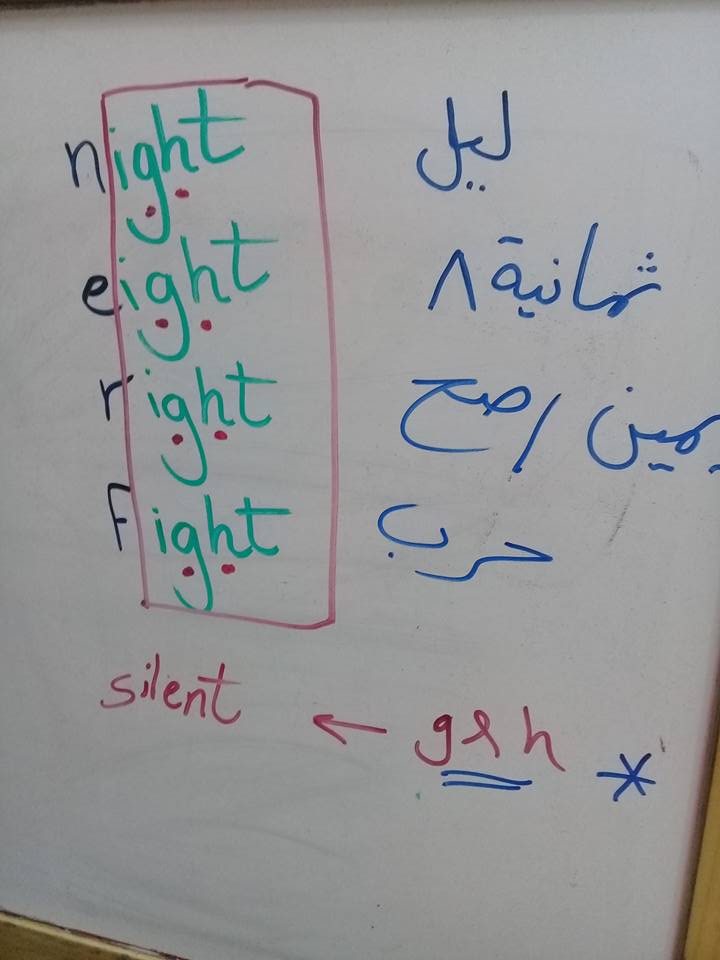 night ليل
eight ثمانية ٨
right يمين / صح
Fight حرب
* g & h ← silent